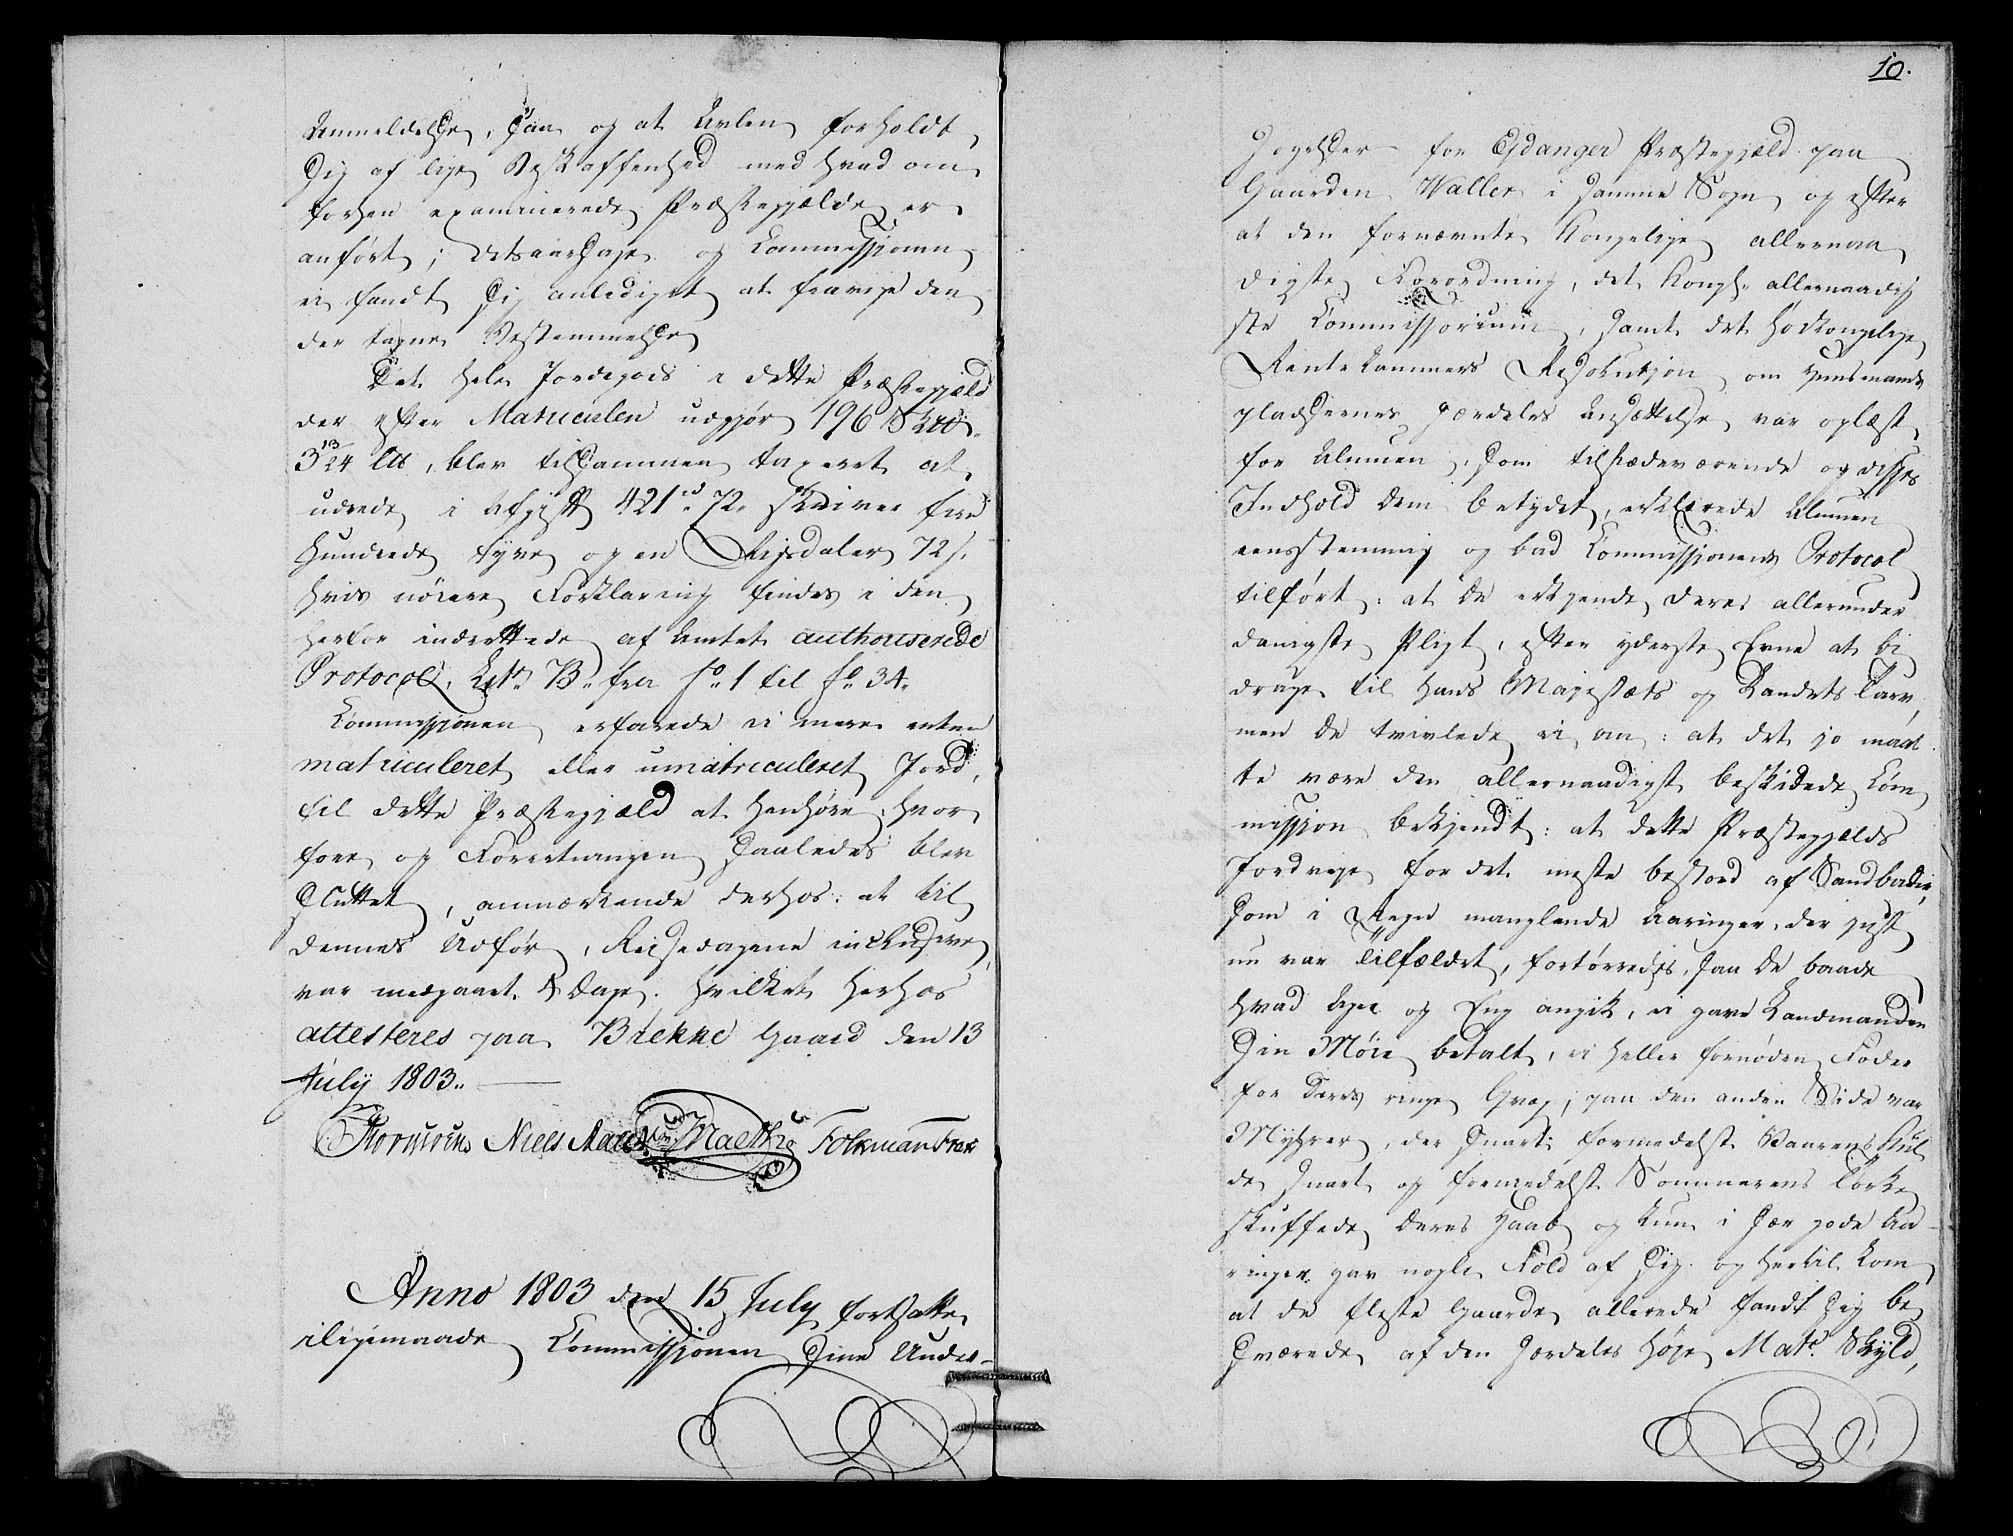 Anmeldelse, saa og at Avlen forholdt
sig af lige Beskaffenhed med hvad om
forhen examinerede Præstegjælde er
anført; Aarsage og Commissionen
ei fandt sig anlediget at fravige den
der tagne Bestemmelse
Det hele Jordegods i dette Præstegjæld
der efter Matriculen udgjør 196 Skd
3 13/24 Lb, blev tilsammen taxeret at
udrede i Afgift 421 rd 72 skriver fire
Hundrede tyve og en Rigsdaler 72 s.
hvis nøiere Forklaring findes i den
herfor indrettede af Amtet authoriserede
Protocol, Litr B. fra fo 1 til fo 34.
Commissionen erfarede ei mere enten
matriculeret eller umatriculeret Jord,
til dette Præstegjæld at henhøre, hvor
fore og Forretningen saaledes blev
sluttet, anmærkende derhos: at til
dennes Udfør, Reisedagene inclusive,
var medgaaet 4 Dage. hvilket herhos
attesteres paa Brekke Gaard den 13
July 1803.
Niels Aall Folkman
Anno 1803 den 15 July fortsatte
iligemaade Commissionen sine Under-
10.
søgelser for Ejdanger Præstegjæld paa
Gaarden Waller i samme Sogn og efter
at den fornævnte Kongelige allernaa
digste Forordning, det Kongl. allernaadig
ste Commissorium, samt det høikongelige
Rente Kammers Resolution om Huusmands
pladsernes særdeles Ansættelse var oplæst
for Almuen, som tilstædeværende og disses
Indhold dem betydet, erklærede Almuen
eensstemmig og bad Commissionens Protocol
tilført: at de erkjende deres allerunder
danigste Pligt, efter yderste Evne at bi
drage til Hans Majestæts og Landets Tarv,
men de tvivlede ei om: at det jo maat
te være den allernaadigst beskikkede Com
mission bekjendt: at dette Præstegjælds
Jordvege for det meste bestod af Sandbakker,
som i Regn manglende Aaringer, der just
nu var Tilfældet, fortørredes, saa de baade
hvad Ager og Eng angik, ei gave Landmanden
sin Møie betalt, ei heller fornøden Foder
for deres ringe Qvæg; paa den anden Side var
Myhrer, der snart formedelst Vaarens Kul
de snart og formedelst Sommerens Tørke
skuffede deres Haab og kun i sær gode Aa
ringer gav nogle Fold af sig og hertil kom
at de fleste Gaarde allerede fandt sig be
sværede af den særdeles høje Matr. Skyld,